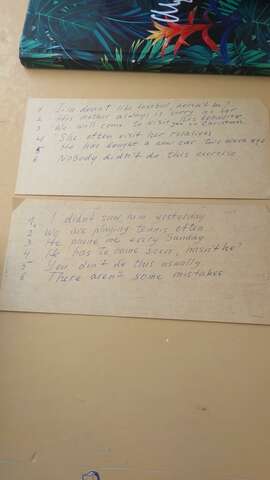 1. Jim doesn't like football, doesn't he?
2. His mother always is worry as her his behaviour
3 We will come to visit you on Christmas
4 She often visit her relatives
5 He has bought a new car two days ago
6 Nobody didn't do this exercise
1. I didn't saw him yesterday
2 We are playing tennis often
3 He phone me every Sunday
4 He has to come soon, hasn't he?
5 You don't do this usually
6 There aren't some mistakes